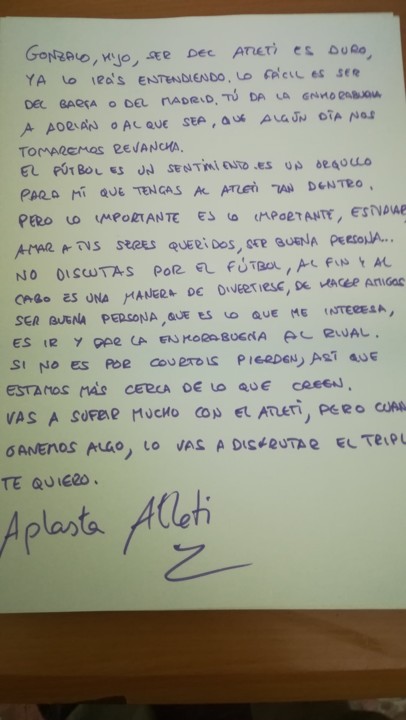 GONZALO, HIJO, SER DEL ATLETI ES DURO,
YA LO IRÁS ENTENDIENDO. LO FÁCIL ES SER
DEL BARÇA O DEL MADRID. TÚ DA LA ENHORABUENA
A ADRIÁN O AL QUE SEA, QUE ALGÚN DÍA NOS
TOMAREMOS REVANCHA.
EL FÚTBOL ES UN SENTIMIENTO. ES UN ORGULLO
PARA MÍ QUE TENGAS AL ATLETI TAN DENTRO.
PERO LO IMPORTANTE ES LO IMPORTANTE, ESTUDIAR,
AMAR A TUS SERES QUERIDOS, SER BUENA PERSONA...
NO DISCUTAS POR EL FÚTBOL, AL FIN Y AL
CABO ES UNA MANERA DE DIVERTIRSE, DE HACER AMIGOS
SER BUENA PERSONA, QUE ES LO QUE ME INTERESA,
ES IR Y DAR LA ENHORABUENA AL RIVAL.
SI NO ES POR COURTOIS PIERDEN, ASÍ QUE
ESTAMOS MÁS CERCA DE LO QUE CREEN.
VAS A SUFRIR MUCHO CON EL ATLETI, PERO CUAN
GANEMOS ALGO, LO VAS A DISFRUTAR EL TRIPL
TE QUIERO.
Aplasta Atleti